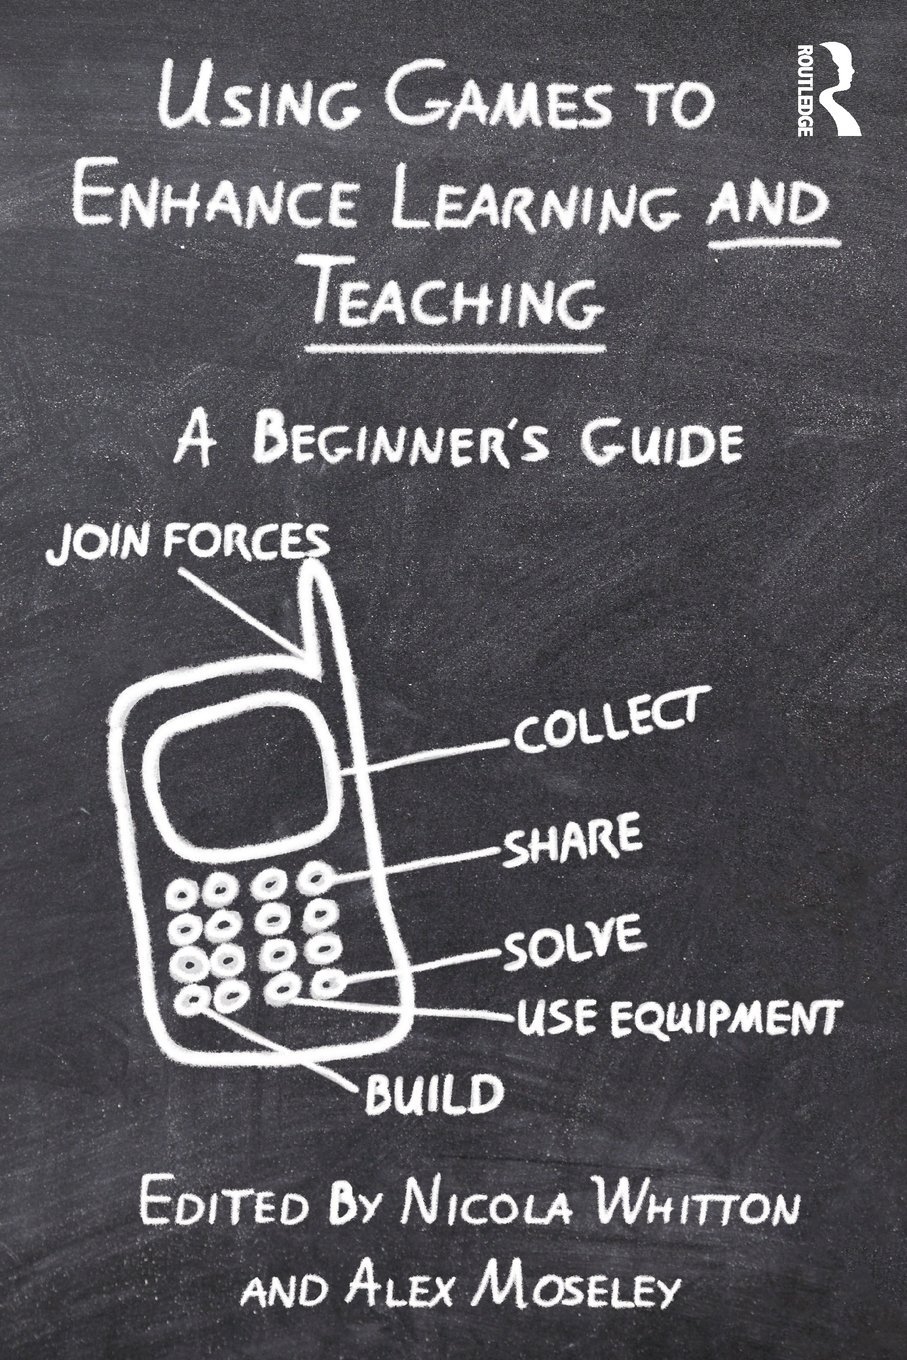 ROUTLEDGE
USING GAMES TO
ENHANCE LEARNING AND
TEACHING
A BEGINNER'S GUIDE
JOIN FORCES
COLLECT
SHARE
SOLVE
USE EQUIPMENT
BUILD
EDITED BY NICOLA WHITTON
AND ALEX MOSELEY